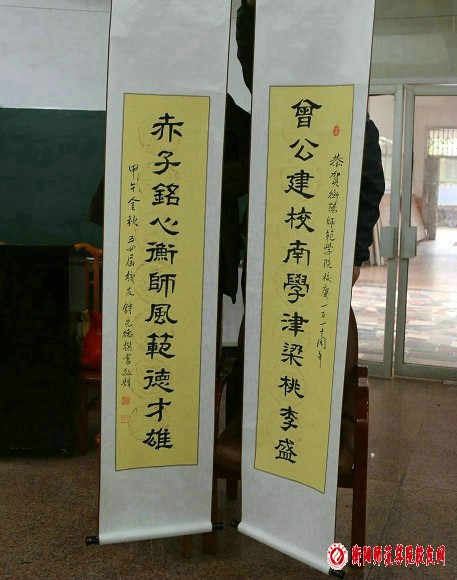 恭賀衡陽師範學院校慶一百一十周年
曾公建校南學津梁桃李盛
赤子銘心衡師風範德才雄
甲午金秋五四届校友
撰書敬贈
衡陽师范学院校友网